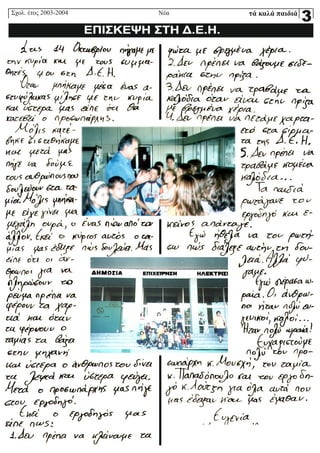 Σχολ. έτος 2003-2004
Νέα
τά καλά παιδιά
3
ΕΠΙΣΚΕΨΗ ΣΤΗ Δ.Ε.Η.
Στις 14 Οκτωβρίου πήγαμε με
την κυρία και με τους συμμα-
θητές μου στη Δ.Ε.Η.
Όταν μπήκαμε μέσα ένας α-
στυφύλακας μίλησε με την κυρία
και ύστερα μας είπε ότι θα
κατεβεί ο προσωπάρχης.
Μόλις κατέ-
βηκε
και μετά μας
πήγε να δούμε
τους ανθρώπους που
δουλεύουν στα τα-
μία. Μόλις μπήκα-
με είχε γίνει μια
μεγάλη ουρά, ο ένας πίσω από τον
άλλον. Εκεί ο κύριος αυτός ο τα-
μίας μας έδειξε πώς δουλεύει. Μας
είπε ότι οι άν-
θρωποι για να
πληρώσουν το
ρεύμα πρέπει να
φέρουν τα χαρ-
τιά και όταν
τα φέρουν ο
ταμίας τα βάζει
στην μηχανή
και ύστερα ο άνθρωπος του δίνει
τα λεφτά και ύστερα φεύγει.
Μετά ο προσωπάρχης μας πήγε
στον εργοδηγό.
Εκεί ο εργοδηγός μας
είπε πως:
1. Δεν πρέπει να κλείνουμε τα
φώτα με βρεμένα χέρια.
2. Δεν πρέπει να βάζουμε σιδε-
ράκια στην πρίζα.
3. Δεν πρέπει να τραβάμε τα
καλώδια όταν είναι στην πρίζα
με βρεμένα χέρια.
4. Δεν πρέπει να πετάμε χαρτα-
ετό στα σύρμα-
τα της Δ.Ε.Η.
5. Δεν πρέπει να
τραβάμε κομμένα
καλώδια...
Τα παιδιά
ρωτάγανε τον
εργοδηγό και ε-
κείνος απάνταγε.
Εγώ ήθελα να τον ρωτή-
σω πώς διάλεξε αυτήν τη δου-
λειά. Αλλά φύ-
γαμε.
Εγώ πέρασα ω-
ραία. Οι άνθρω-
ποι ήταν πολύ ευ-
γενικοί, καλοί...
Ήταν πολύ ωραία!
Ευχαριστούμε
πολύ τον προ-
σωπάρχη κ. Μουσχή, τον ταμία
κ. Παπαδόπουλο και τον εργοδη-
γό κ. Λούτζη για όλα αυτά που
μας έδειξαν και μας έμαθαν.
Ευγενία
ΔΗΜΟΣΙΑ ΕΠΙΧΕΙΡΗΣΗ ΗΛΕΚΤΡΙΣ